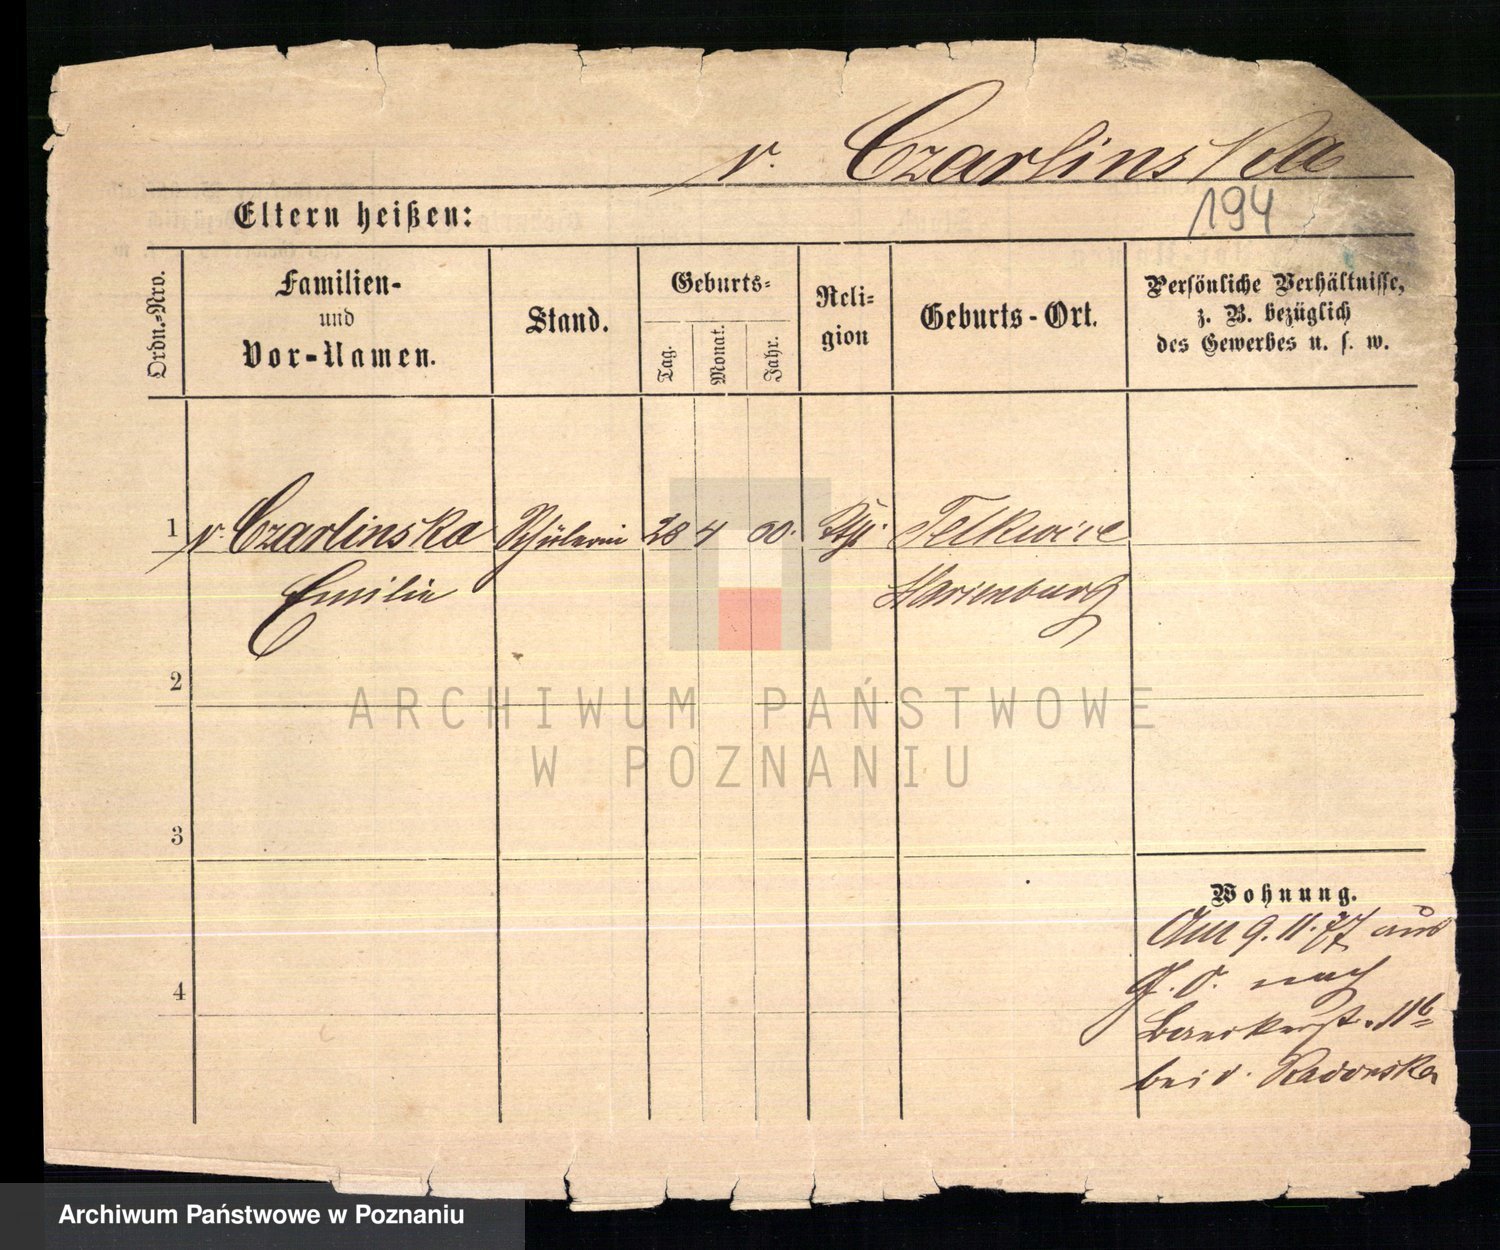 v. Czarlinska
194
Eltern heißen:
Ordn.-Nro.
Familien-
und
Vor-Namen.
Stand.
Geburts-
Tag.
Monat.
Jahr.
Reli-
gion
Geburts-Ort.
Persönliche Verhältnisse,
z. B. bezüglich
des Gewerbes u. s. w.
1 v. Czarlinska Schülerin 28 4 60. Kth. Telkwice
Emilie Marienburg
2
3
4
Wohnung.
Am 9. 11. 77 aus
G. O. nach
11b
bei v. Radonska
ARCHIWUM PAŃSTWOWE
W POZNANIU
Archiwum Państwowe w Poznaniu